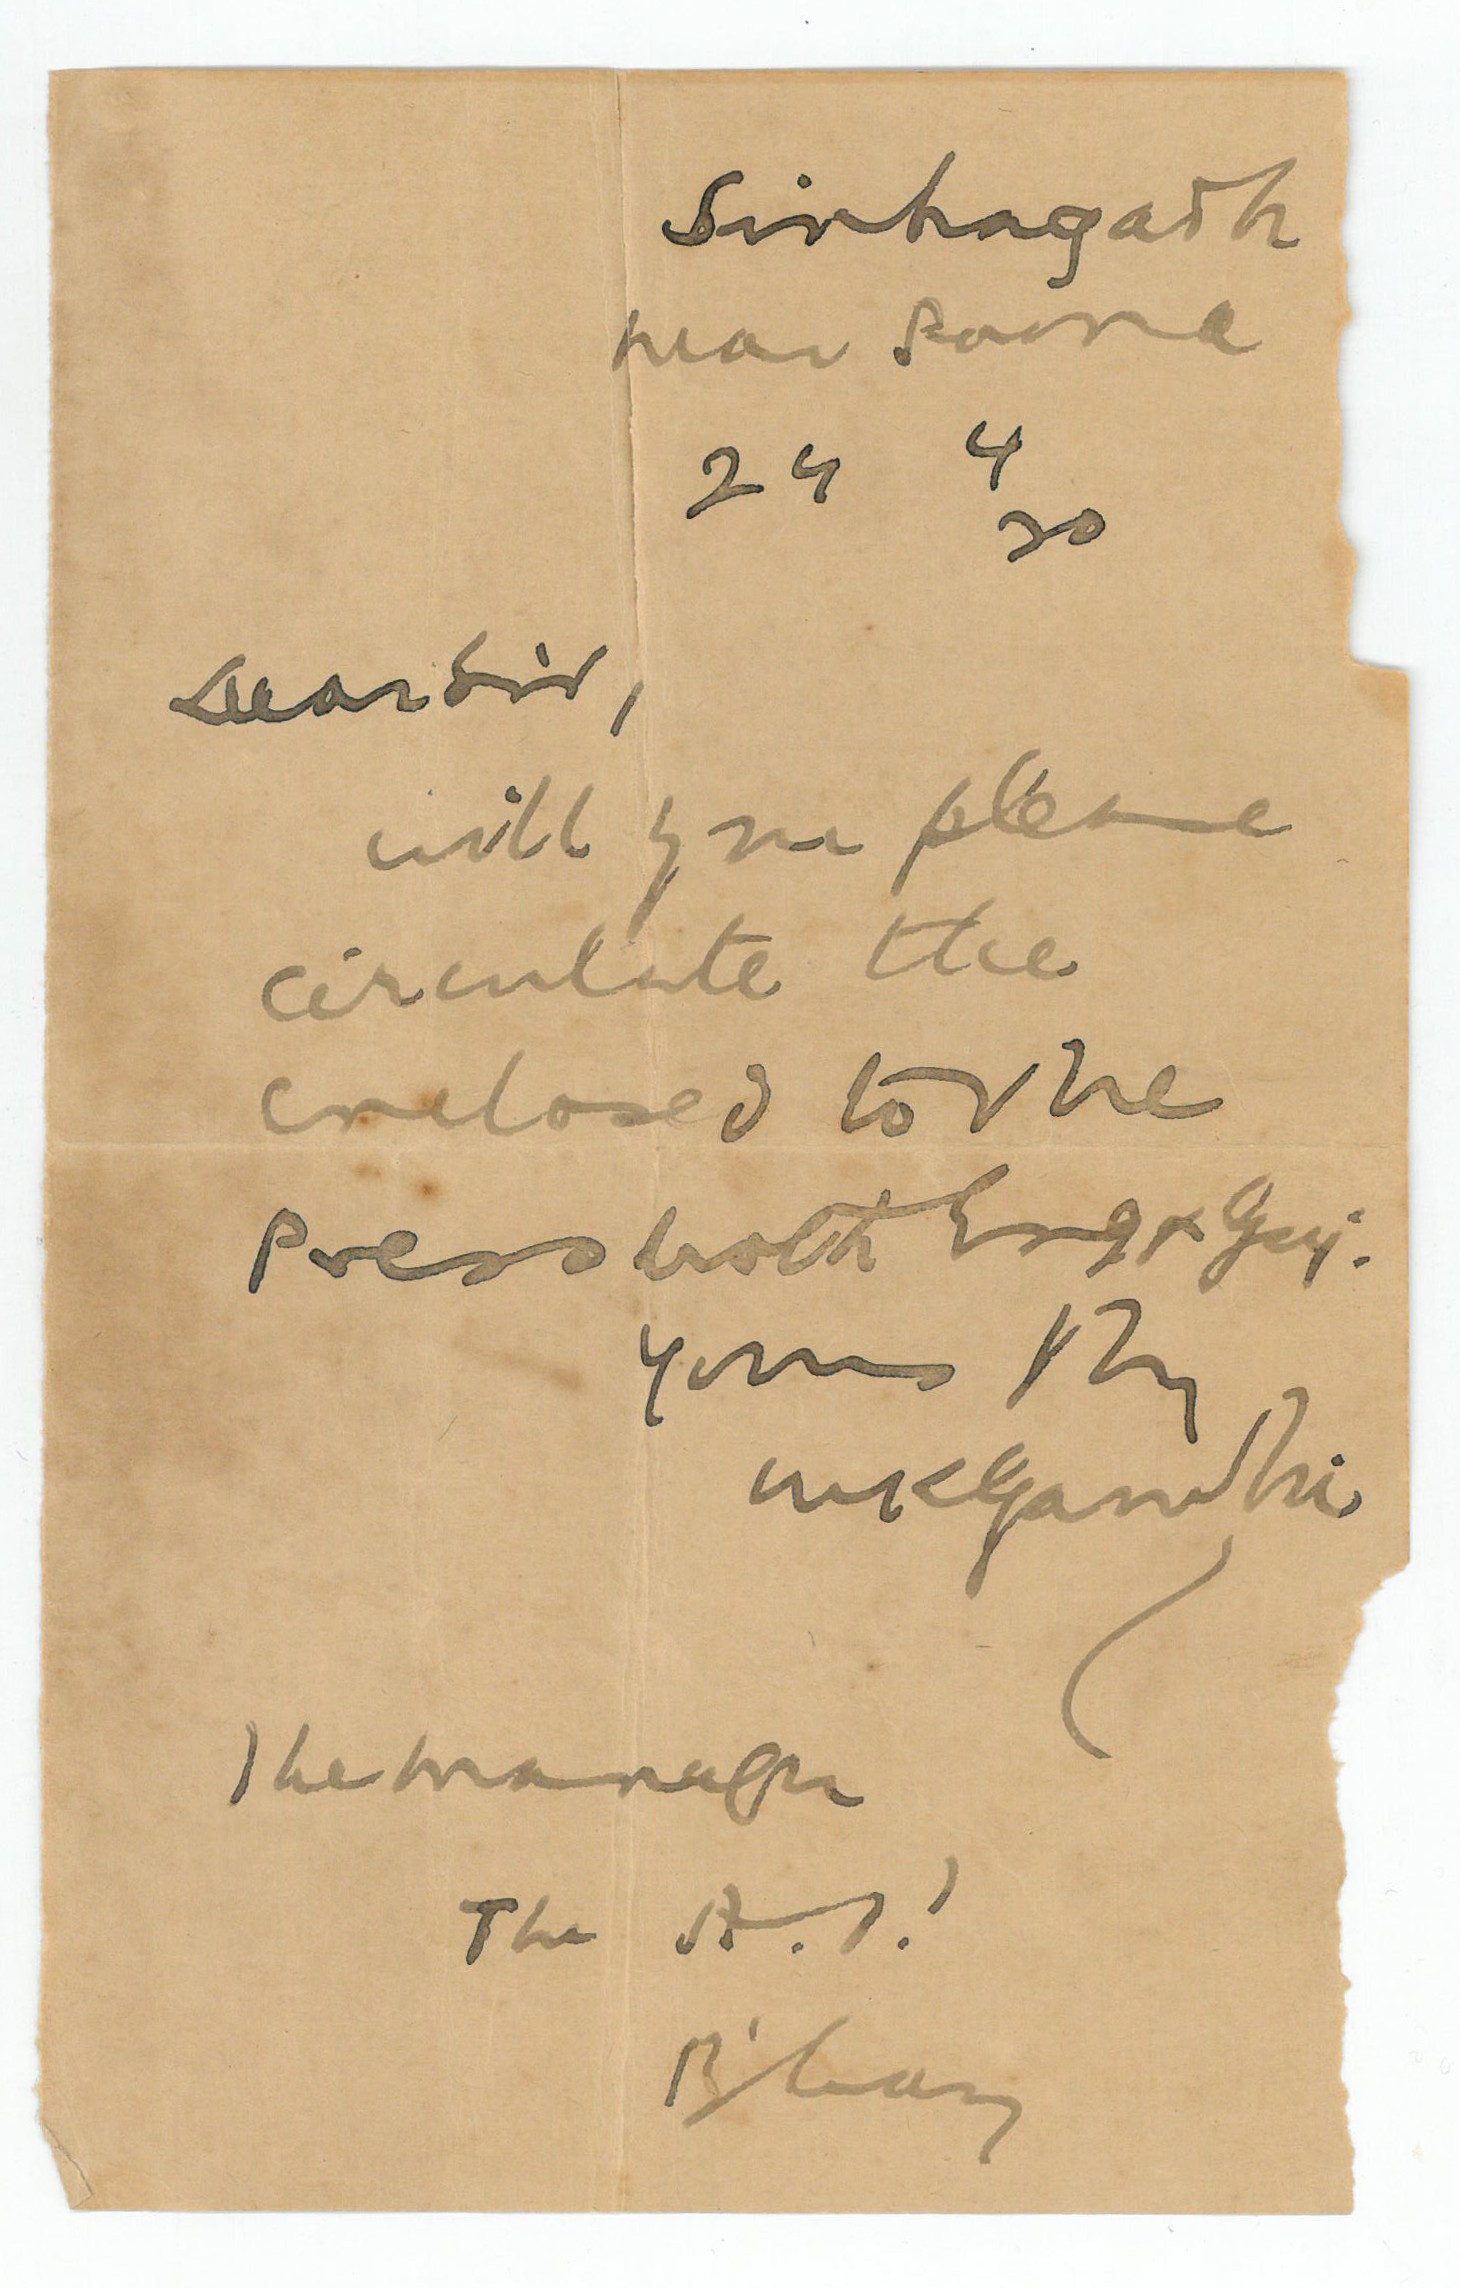 Sinhagadh
near Poona
24 4
20
Dear Sir,
will you please
circulate the
enclosed to the
Press both Eng & Guj.
yours fly
MKGandhi
The Manager
The A.P.
B'bay